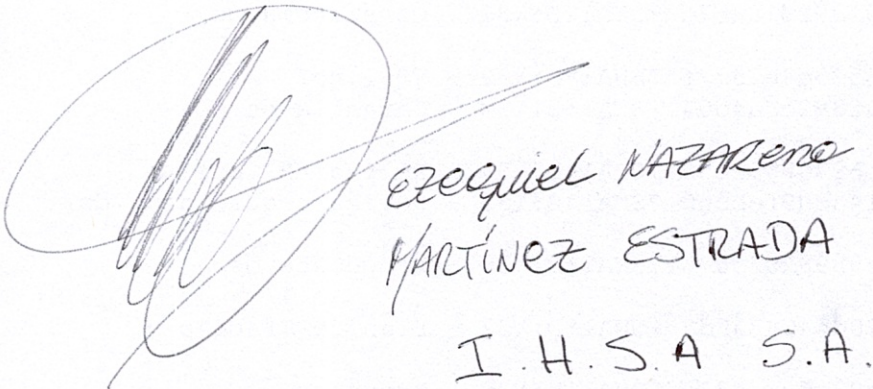 EZEQUIEL NAZARENO
MARTÍNEZ ESTRADA
I.H.S.A S.A.